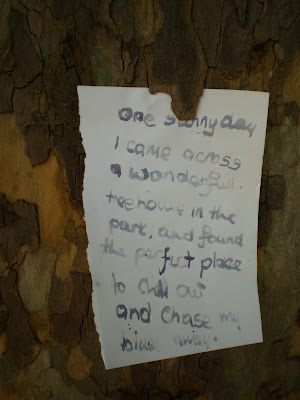 one sunny day
I came across
a wonderfull
treehouse in the
park, and found
the perfect place
to chill out
and chase my
blues away.